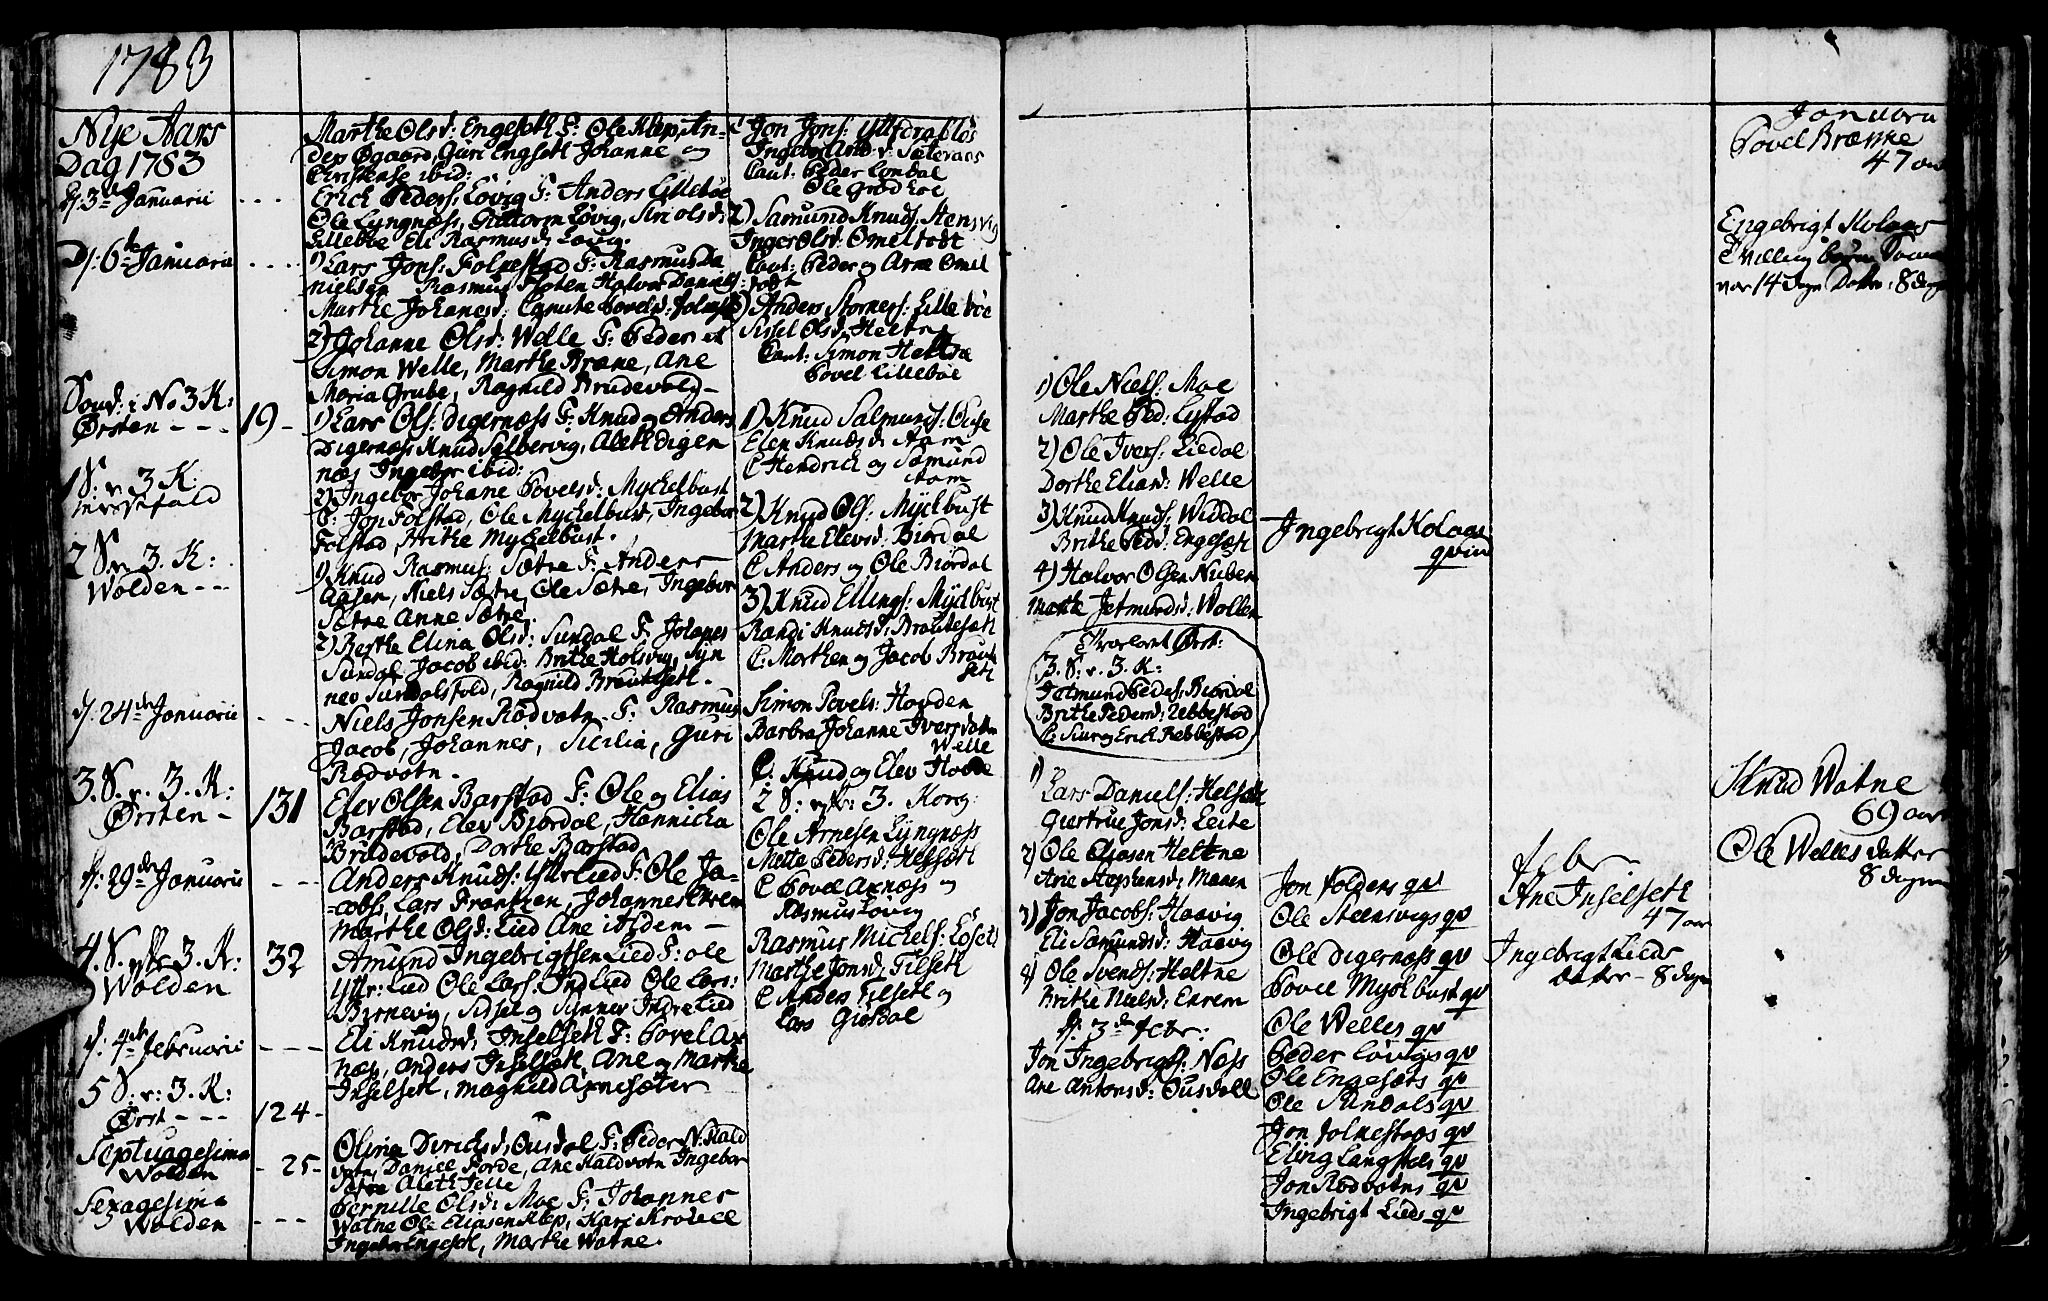 1783
Nye Aars
Dag 1783
d: 3de Januarii - - -
d: 6te Januarii - - -
Sond: i No 3 K:
Ørsten - - - 19 -
1 S: v. 3 K:
2 S. v. 3. K:
Wolden - - -
d: 24de Januarii - - -
3. S. v. 3. K:
Ørsten - 131
d: 29de Januarii - - -
4. S. v. 3. K: 32
Wolden
d: 4de Februarii - - -
5 S: v: 3. K:
Ørst - - - 124 -
Septuagesima
Wolden - 25 -
Sexagesima
Wolden - - -
Marthe Olsd: Engeseth F: Ole Klep, An-
ders Øgaard, Guri Engseth Johanne og
Christense ibid:
Erich Peders: Løvig F: Anders Lillebøe
Ole Lyngnæss, Guttorm Løvig, Siri Olsd:
Lillebøe Eli Rasmusd: Løvig.
1) Lars Jons: Folkestad F: Rasmus Da
nielsen Rasmus Floten Halvor Daniels:
Marthe Johanesd: Povelsd: Folkest
2) Johanne Olsd: Welle F: Peder et
Simon Welle, Marthe Bræne, Ane
Maria Grube, Ragnild Brudevold -
1) Lars Ols: Digernæss F: Knud og Anders
Digernæss Knud Selbervig, Aleth Digen
næs Ingebor ibid:
2) Ingebor Johane Povelsd: Myckelbust
F: Jon Folstad, Ole Myckelbust, Ingebor
Folstad, Brithe Myckelbust.
1) Knud Rasmus: Sætre F: Anders
Aasen, Niels Sætre, Ole Sætre, Ingebor
Sætre Anne Sætre.
2) Berthe Elina Olsd: Sundal F: Johanes
Sundal Jacob ibid: Brithe Holsvig, Syn
nev Sundalsfold, Ragnild Brauteseth.
Niels Jonsen Rødvotn - F: Rasmus
Jacob, Johannes, Sicilia, Guri
Rødvotn.
Elev Olsen Barstad F: Ole og Elias
Barstad, Elev Biørdal, Hannicka
Brudevold, Dorthe Barstad
Anders Knuds: Ytterlied F: Ole Ja-
cobs, Lars Frantzen, Johannes
Marthe Olsd: Lied Ane itidem -
Amund Ingebrigtsen Lied F: Ole
Yttr: Lied Ole Lars: Indlied Ole Lars:
Biørnevig, Sidsel og Synnev Indrelied
Eli Knudsd: Inselseth F: Povel Ax
næs, Anders Inselseth, Ane og Marthe
Inselseth, Magnild Axnesæter
Olina Dericksd: Ousdal F: Peder N: Hald
votn, Daniel Førde, Ane Haldvotn Ingebor
Aleth Felle
Pernille Olsd: Moe F: Johannes
Watne Ole Eliasen Klep, Kari Krøvel
Ingebor Engeseth, Marthe Watne.
Jon Jons: Yttfdrabløs
Sæteraas
Caut: Peder Lombal
Ole Grødtøe
2) Samund Knuds: Stensvig
Inger Olsd: Omelfodt
Caut: Peder og Arne Omel
fodt
3) Anders Storners: Lillebøe
Sissel Olsd: Heltne
Caut: Simon Heltne
Povel Lillebøe
1) Knud Salmunds: Ouse
Elen Knudsd: Aam
C Hendrick og Samund
Aam
2) Knud Ols: Myckbust
Marthe Elevsd: Biørdal
C Anders og Ole Biørdal
3) Knud Ellings: Myckbust
Randi Knudsd: Brauteseth
C: Morthen og Jacob Braut
seth
Simon Povels: Hovden
Barbra Johanne Iversdatter
Welle
C: Knud og Elev Hovde
2 S: 3. Kong:
Ole Arnesen Lyngnæss
Mette Pedersd: Helseth
C Povel Axnæss og
Rasmus Løvig
Rasmus Michels: Løseth
Marthe Jonsd: Fitseth
C Anders Fitseth og
Lars Giørdal
1) Ole Niels: Moe
Marthe Ped: Lystad
2) Ole Ivers: Liedal
Dorthe Eliasd: Welle
3) Knud Knuds: Widdal
Brithe Pedd: Engesæt
4) Halvor Olsen Nuben
Marthe Jetmundsd: Wollen
Trolovet Ørst:
3. S. v. 3. K:
Jetmund Peders: Biørdal
Brithe Pedersd: Rebbestad
C: Siur og Erich Rebbestad
1)
Lars Daniels: Helseth
Giertrue Jonsd: Leite
2) Ole Eliasen Heltne
Ane Stephensd: Maaen
3) Jon Jacobs: Haavig
Eli Samundsd: Haavig
4) Ole Svends: Heltne
Brithe Nielsd: Eurem
d: 3de Febr:
Jon Ingebrigts: Næss
Ane Antonsd: Ousdall
Ingebrigt Kolaas
qvin
Jon Foldens qv
Ole Steensvigs qv
Ole Digernæss qv
Povel Myckbust qv
Ole Welles qv
Peder Løvigs qv
Ole Engesæts qv
Ole Sundals qv
Jon Folkestads qv
Eling Langstøls qv
Jon Rødvotns qv
Ingebrigt Lieds qv
Febr
Ane Inselseth
47 aar
Ingebrigt Lieds
datter - 8 dagen
Januarii
Povel Brække
47 aar
Engebrigt Kolaas
Tvilling børn
var 14 dagn Datter: 8 dage
Knud Watne
69 aar
Ole Welles datter
8 dagen